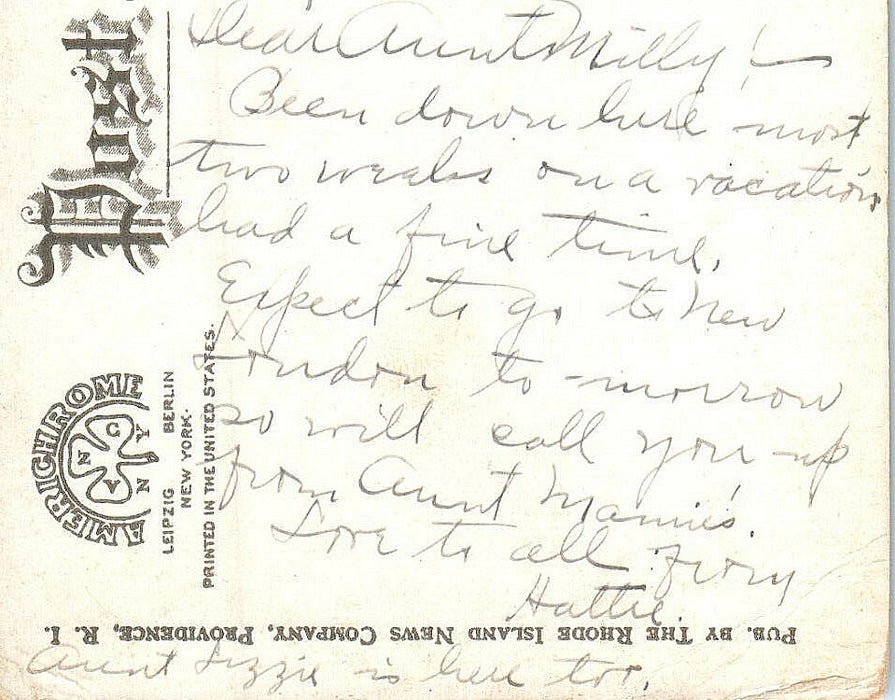 Dear Aunt Milly! —
Been down here most
two weeks on a vacation
had a fine time.
Expect to go to New
London to-morrow
so will call you up
from Aunt Mamie's.
Love to all from
Hattie.
Aunt Lizzie is here too.
Post
AMERICHROME
LEIPZIG BERLIN
NEW YORK.
PRINTED IN THE UNITED STATES.
PUB. BY THE RHODE ISLAND NEWS COMPANY, PROVIDENCE, R. I.